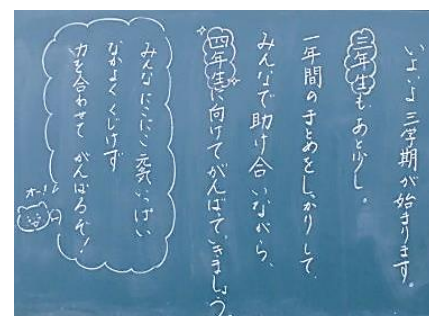 いよいよ三学期が始まります。
三年生もあと少し。
一年間のまとめをしっかりして、
みんなで助け合いながら、
四年生に向けてがんばっていきましょう。
みんなにこにこ元気いっぱい
なかよくくじけず
力を合わせてがんばるぞ!
オー!